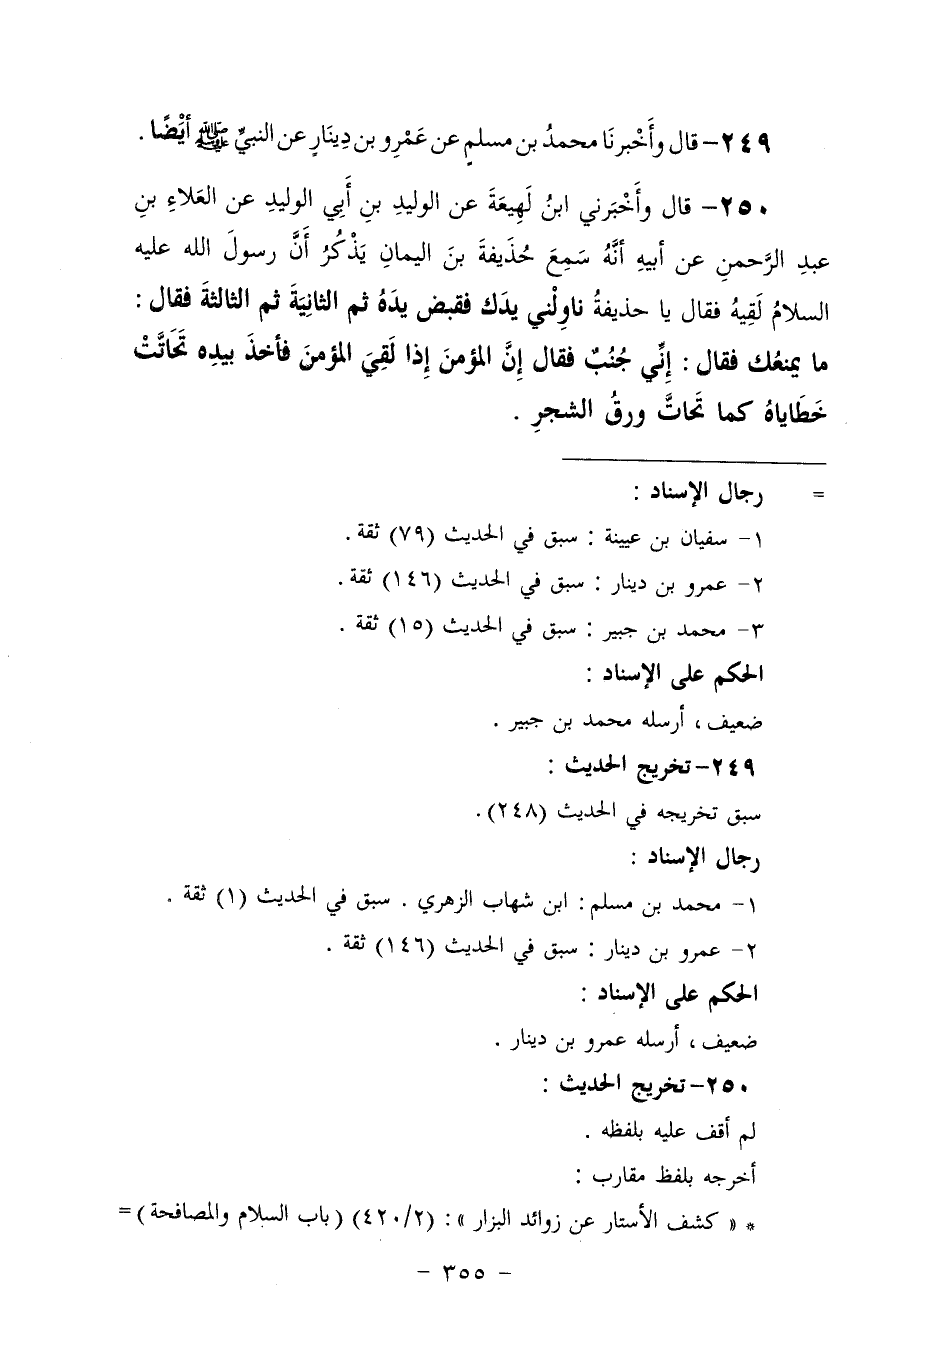 ٢٤٩- قال وأَخْبرنَا محمدُ بن مسلمٍ عن عَمْرِو بن دِينَارٍ عن النبيِّ ﷺ أيْضًا .
٢٥٠- قال وأَخْبَرني ابنُ لَهِيعَةَ عن الوليدِ بنِ أَبِي الوليدِ عن العَلاءِ بنِ
عبدِ الرَّحمنِ عن أبيهِ أنَّهُ سَمِعَ حُذَيفةَ بنَ اليمانِ يَذْكُرُ أَنَّ رسولَ الله عليه
السلامُ لَقِيهُ فقال يا حذيفةُ ناوِلْني يدَك فقبض يدَهُ ثم الثانِيَةَ ثم الثالثةَ فقال :
ما يمنعُك فقال : إِنِّي جُنُبٌ فقال إِنَّ المؤمنَ إِذا لَقِيَ المؤمنَ فأخذَ بيدِه تَحَاتَّتْ
خَطَاياهُ كما تَحاتَّ ورقُ الشجرِ .
= رجال الإسناد :
١- سفيان بن عيينة : سبق في الحديث (٧٩) ثقة .
٢- عمرو بن دينار : سبق في الحديث (١٤٦) ثقة .
٣- محمد بن جبير : سبق في الحديث (١٥) ثقة .
الحكم على الإسناد :
ضعيف ، أرسله محمد بن جبير .
٢٤٩- تخريج الحديث :
سبق تخريجه في الحديث (٢٤٨).
رجال الإسناد :
١- محمد بن مسلم : ابن شهاب الزهري . سبق في الحديث (١) ثقة .
٢- عمرو بن دينار : سبق في الحديث (١٤٦) ثقة .
الحكم على الإسناد :
ضعيف ، أرسله عمرو بن دينار .
٢٥٠- تخريج الحديث :
لم أقف عليه بلفظه .
أخرجه بلفظ مقارب :
* « كشف الأستار عن زوائد البزار » : (٤٢٠/٢) ( باب السلام والمصافحة ) =
- ٣٥٥ -